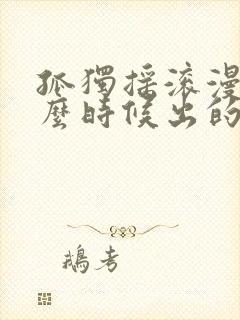 孤獨搖滾漫
麼時候出的
鵝考